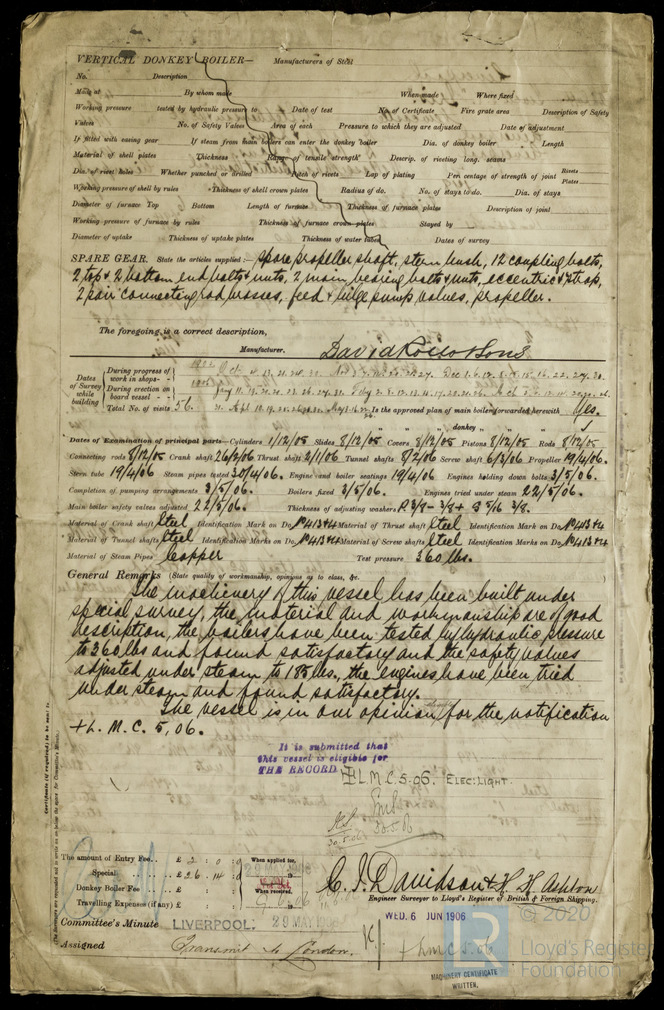 VERTICAL DONKEY BOILER— Manufacturers of Steel
No. Description
Made at By whom made When made Where fixed
Working pressure tested by hydraulic pressure to Date of test No. of Certificate Fire grate area Description of Safety
Valves No. of Safety Valves Area of each Pressure to which they are adjusted Date of adjustment
If fitted with easing gear If steam from main boilers can enter the donkey boiler Dia. of donkey boiler Length
Material of shell plates Thickness Range of tensile strength Descrip. of riveting long. seams
Dia. of rivet holes Whether punched or drilled Pitch of rivets Lap of plating Per centage of strength of joint Rivets Plates
Working pressure of shell by rules Thickness of shell crown plates Radius of do. No. of stays to do. Dia. of stays
Diameter of furnace Top Bottom Length of furnace Thickness of furnace plates Description of joint
Working pressure of furnace by rules Thickness of furnace crown plates Stayed by
Diameter of uptake Thickness of uptake plates Thickness of water tubes Dates of survey
SPARE GEAR. State the articles supplied:— Spare propeller shaft, stern bush, 12 coupling bolts,
2 top & 2 bottom end bolts & nuts, 2 main bearing bolts & nuts, eccentric & strap,
2 pair connecting rod brasses, feed & bilge pump valves, propeller.
The foregoing is a correct description,
Manufacturer. David Rollo & Sons
Dates of Survey while building
During progress of work in shops - -
During erection on board vessel - - -
Total No. of visits 56. Is the approved plan of main boiler forwarded herewith Yes.
" " " donkey " " "
Dates of Examination of principal parts—Cylinders 1/12/05 Slides 8/12/05 Covers 8/12/05 Pistons 8/12/05 Rods 8/12/05
Connecting rods 8/12/05 Crank shaft 26/2/06 Thrust shaft 2/1/06 Tunnel shafts 8/2/06 Screw shaft 6/3/06 Propeller 19/4/06.
Stern tube 19/4/06 Steam pipes tested 30/4/06. Engine and boiler seatings 19/4/06 Engines holding down bolts 3/5/06.
Completion of pumping arrangements 3/5/06. Boilers fixed 3/5/06. Engines tried under steam 22/5/06.
Main boiler safety valves adjusted 22/5/06. Thickness of adjusting washers
Material of Crank shaft Steel Identification Mark on Do. Material of Thrust shaft Steel Identification Mark on Do.
Material of Tunnel shafts Steel Identification Marks on Do. Material of Screw shafts Steel Identification Marks on Do.
Material of Steam Pipes Copper Test pressure 360 lbs.
General Remarks (State quality of workmanship, opinions as to class, &c.
The machinery of this vessel has been built under
special survey, the material and workmanship are of good
description, the boilers have been tested by hydraulic pressure
to 360 lbs and found satisfactory and the safety valves
adjusted under steam to 185 lbs., the engines have been tried
under steam and found satisfactory.
The vessel is in our opinion for the notification
+ L. M. C. 5, 06.
It is submitted that
this vessel is eligible for
THE RECORD + L M C 5.06. ELEC: LIGHT.
30.5.06 30.5.06
The amount of Entry Fee.. £ 2 : 0 : 0 When applied for,
Special .. .. £ 26 . 14 : 0
Donkey Boiler Fee .. .. £ : : When received,
Travelling Expenses (if any) £ : :
C. J. Davidson & H. H. Ashton
Engineer Surveyor to Lloyd's Register of British & Foreign Shipping.
Committee's Minute LIVERPOOL. 29 MAY 1906 WED. 6 JUN 1906
Assigned Transmit to London. + L M C 5.06
MACHINERY CERTIFICATE
WRITTEN.
© 2020
Lloyd's Register
Foundation